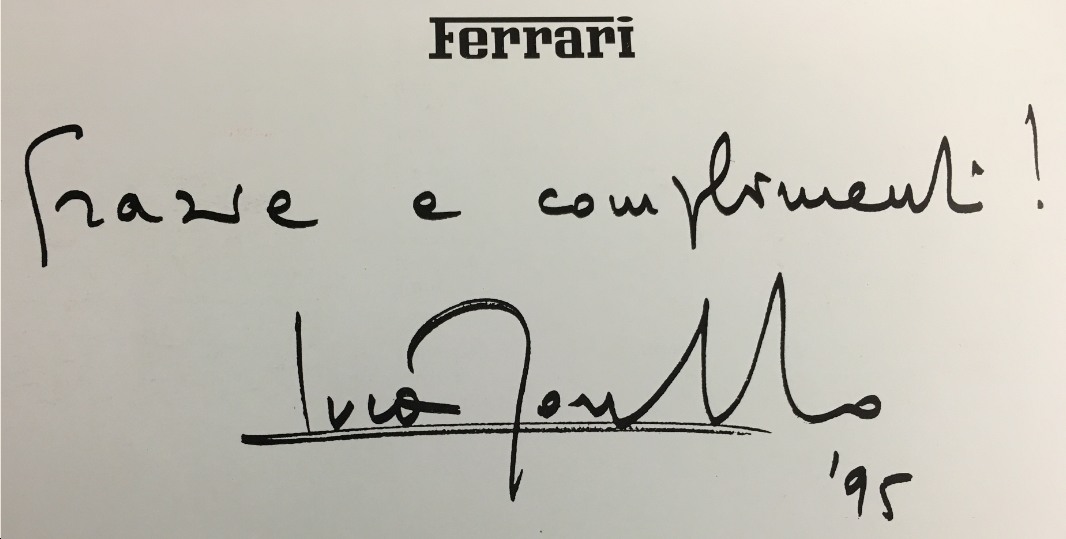 Ferrari
Grazie e complimenti!
Luca
'95